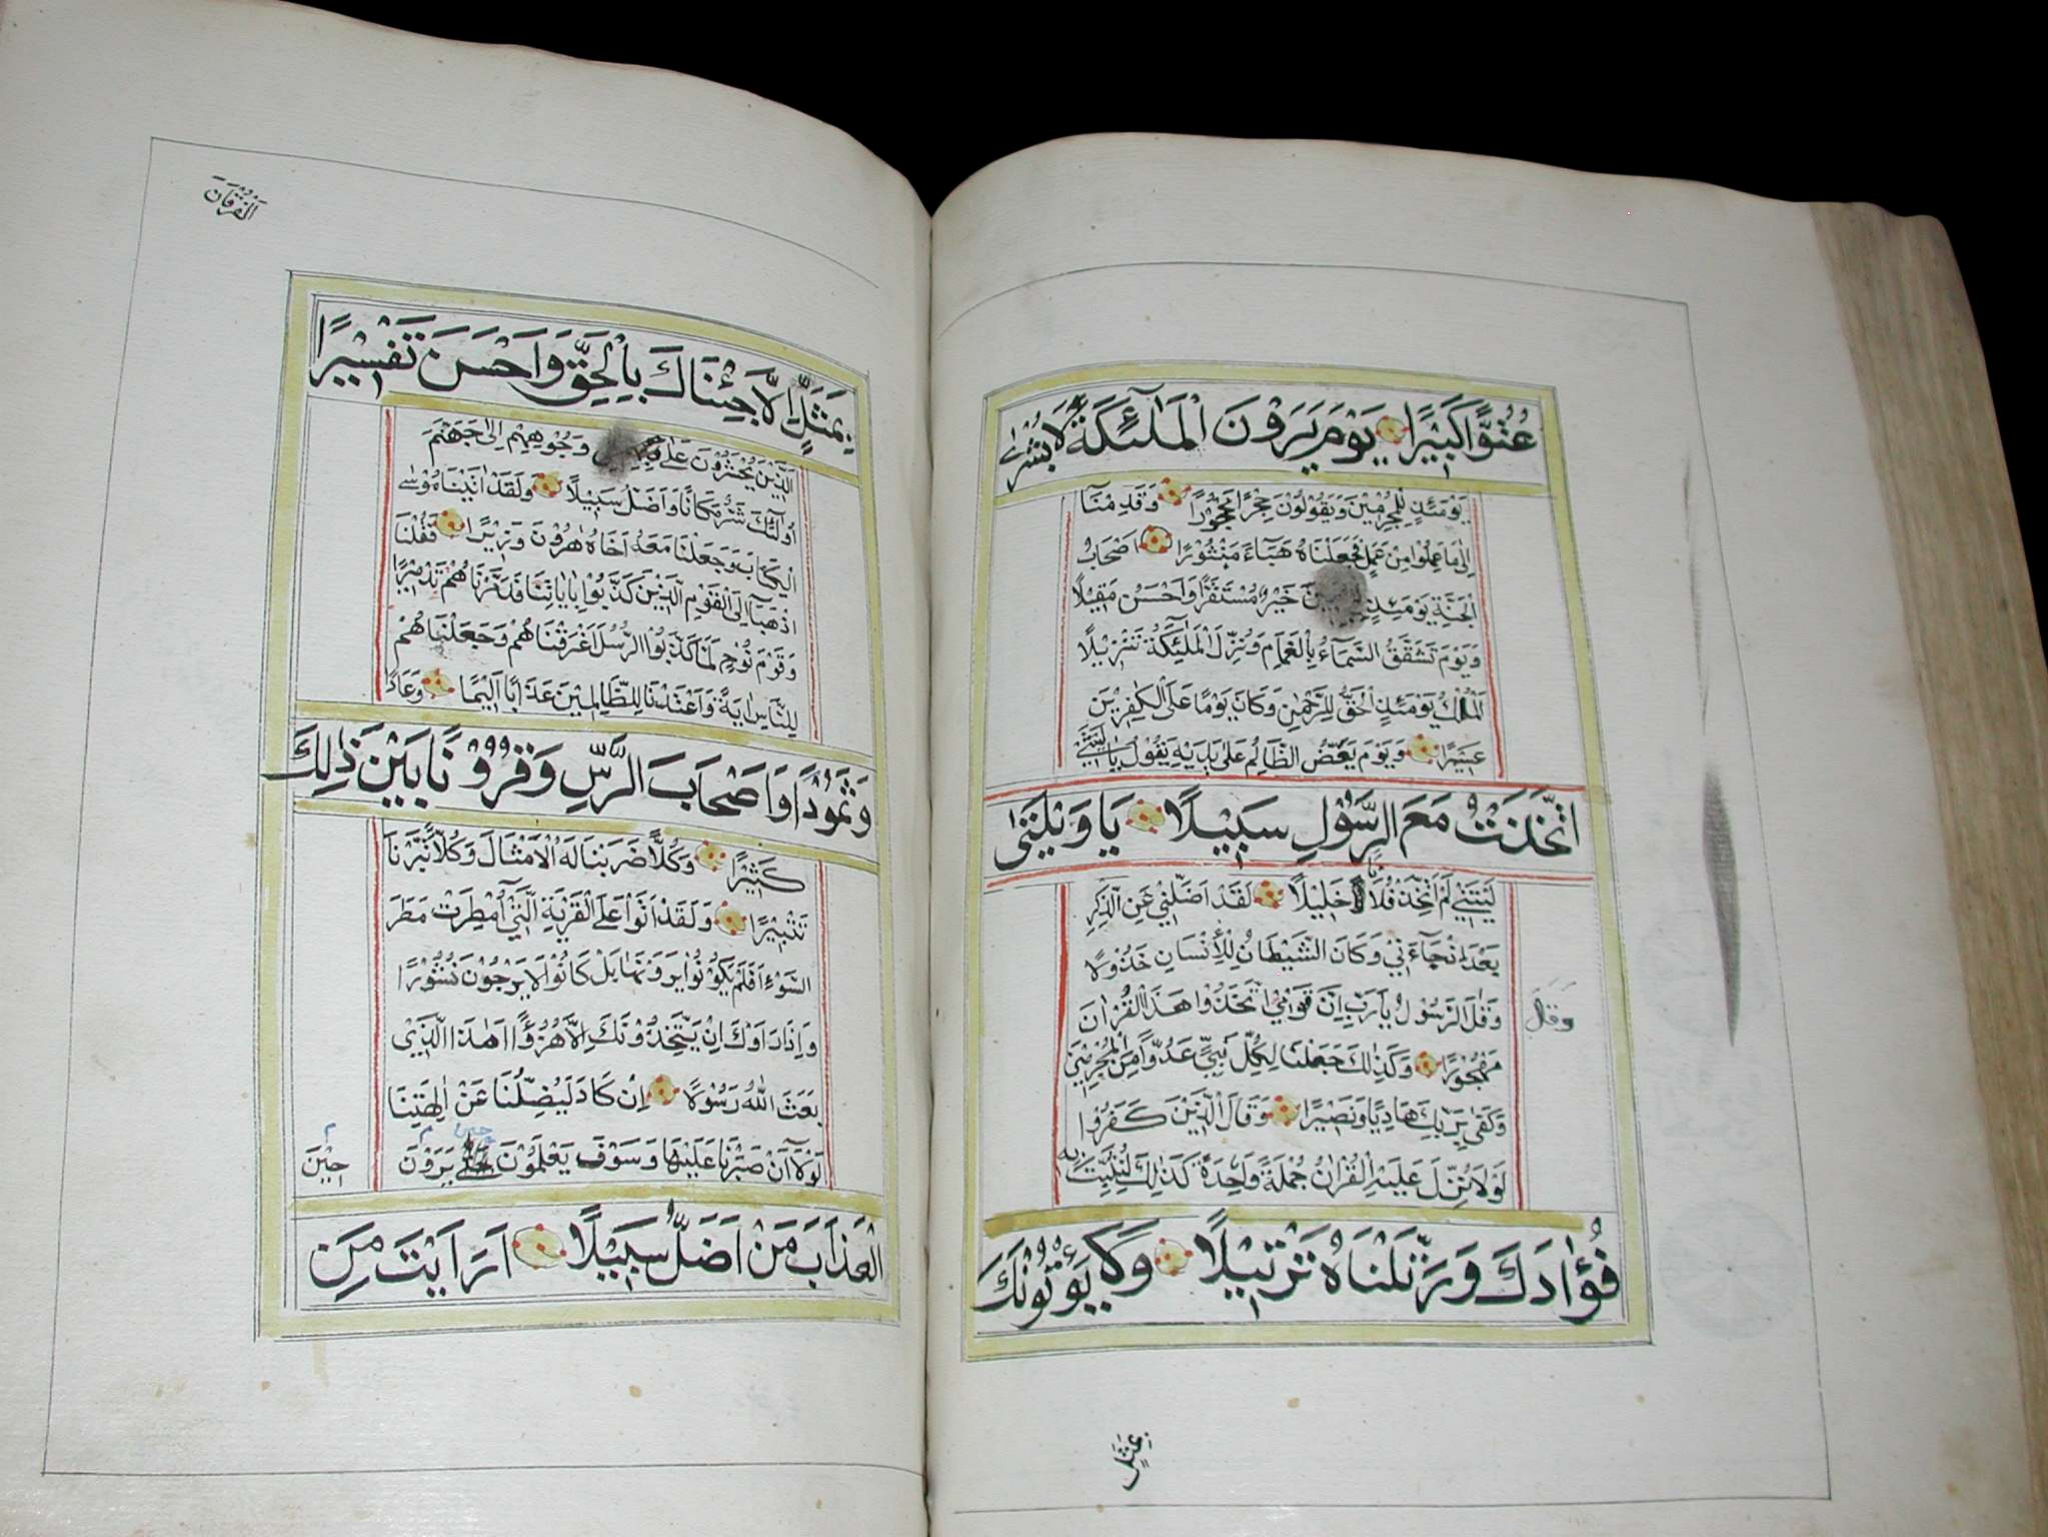 عُتُوًّا كَبِيْرًا يَوْمَ يَرَوْنَ الْمَلٰٓئِكَةَ لَا بُشْرٰى
يَوْمَئِذٍ لِلْمُجْرِمِيْنَ وَيَقُوْلُوْنَ حِجْرًا مَحْجُوْرًا وَقَدِمْنَآ
اِلٰى مَا عَمِلُوْا مِنْ عَمَلٍ فَجَعَلْنَاهُ هَبَآءً مَنْثُوْرًا اَصْحَابُ
الْجَنَّةِ يَوْمَئِذٍ خَيْرٌ مُسْتَقَرًّا وَاَحْسَنُ مَقِيْلًا
وَيَوْمَ تَشَقَّقُ السَّمَآءُ بِالْغَمَامِ وَنُزِّلَ الْمَلٰٓئِكَةُ تَنْزِيْلًا
اَلْمُلْكُ يَوْمَئِذٍ الْحَقُّ لِلرَّحْمٰنِ وَكَانَ يَوْمًا عَلَى الْكٰفِرِيْنَ
عَسِيْرًا وَيَوْمَ يَعَضُّ الظَّالِمُ عَلٰى يَدَيْهِ يَقُوْلُ يَا لَيْتَنِي
اتَّخَذْتُ مَعَ الرَّسُوْلِ سَبِيْلًا يَا وَيْلَتٰى
لَيْتَنِيْ لَمْ اَتَّخِذْ فُلَانًا خَلِيْلًا لَقَدْ اَضَلَّنِيْ عَنِ الذِّكْرِ
بَعْدَ اِذْ جَآءَنِيْ وَكَانَ الشَّيْطَانُ لِلْاِنْسَانِ خَذُوْلًا
وَقَالَ الرَّسُوْلُ يَارَبِّ اِنَّ قَوْمِيْ اتَّخَذُوْا هَذَا الْقُرْاٰنَ
وَقَالَ
مَهْجُوْرًا وَكَذٰلِكَ جَعَلْنَا لِكُلِّ نَبِيٍّ عَدُوًّا مِنَ الْمُجْرِمِيْنَ
وَكَفٰى بِرَبِّكَ هَادِيًا وَنَصِيْرًا وَقَالَ الَّذِيْنَ كَفَرُوْا
لَوْلَا نُزِّلَ عَلَيْهِ الْقُرْاٰنُ جُمْلَةً وَاحِدَةً كَذٰلِكَ لِنُثَبِّتَ بِهٖ
فُؤَادَكَ وَرَتَّلْنَاهُ تَرْتِيْلًا وَلَا يَأْتُوْنَكَ
بِمَثَلٍ
اَلْفُرْقَانَ
بِمَثَلٍ اِلَّا جِئْنَاكَ بِالْحَقِّ وَاَحْسَنَ تَفْسِيْرًا
اَلَّذِيْنَ يُحْشَرُوْنَ عَلٰى وُجُوْهِهِمْ اِلٰى جَهَنَّمَ
اُولٰٓئِكَ شَرٌّ مَكَانًا وَاَضَلُّ سَبِيْلًا وَلَقَدْ اٰتَيْنَا مُوْسَى
الْكِتَابَ وَجَعَلْنَا مَعَهُ اَخَاهُ هٰرُوْنَ وَزِيْرًا فَقُلْنَا
اذْهَبَآ اِلَى الْقَوْمِ الَّذِيْنَ كَذَّبُوْا بِاٰيَاتِنَا فَدَمَّرْنَاهُمْ تَدْمِيْرًا
وَقَوْمَ نُوْحٍ لَمَّا كَذَّبُوا الرُّسُلَ اَغْرَقْنَاهُمْ وَجَعَلْنَاهُمْ
لِلنَّاسِ اٰيَةً وَاَعْتَدْنَا لِلظَّالِمِيْنَ عَذَابًا اَلِيْمًا وَعَادًا
وَثَمُوْدًا وَاَصْحَابَ الرَّسِّ وَقُرُوْنًا بَيْنَ ذٰلِكَ
كَثِيْرًا وَكُلًّا ضَرَبْنَا لَهُ الْاَمْثَالَ وَكُلًّا تَبَّرْنَا
تَتْبِيْرًا وَلَقَدْ اَتَوْا عَلَى الْقَرْيَةِ الَّتِيْٓ اُمْطِرَتْ مَطَرَ
السَّوْءِ اَفَلَمْ يَكُوْنُوْا يَرَوْنَهَا بَلْ كَانُوْا لَا يَرْجُوْنَ نُشُوْرًا
وَاِذَا رَاَوْكَ اِنْ يَتَّخِذُوْنَكَ اِلَّا هُزُوًا اَهٰذَا الَّذِيْ
بَعَثَ اللّٰهُ رَسُوْلًا اِنْ كَادَ لَيُضِلُّنَا عَنْ اٰلِهَتِنَا
لَوْلَآ اَنْ صَبَرْنَا عَلَيْهَا وَسَوْفَ يَعْلَمُوْنَ حِيْنَ يَرَوْنَ
حِيْنَ
الْعَذَابَ مَنْ اَضَلُّ سَبِيْلًا اَرَاَيْتَ مَنِ